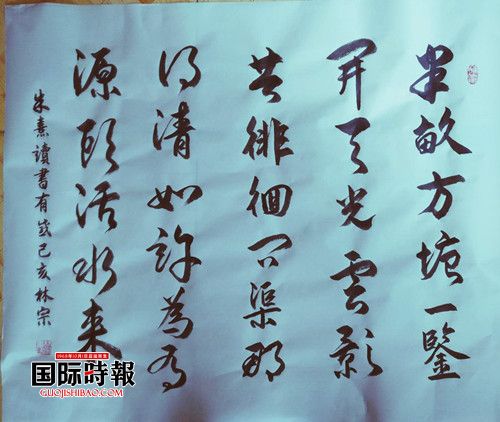 半畝方塘一鑒
開天光雲影
共徘徊問渠那
得清如許為有
源頭活水来
朱熹讀書有感己亥林宗
国际時報
GUOJISHIBAO.COM